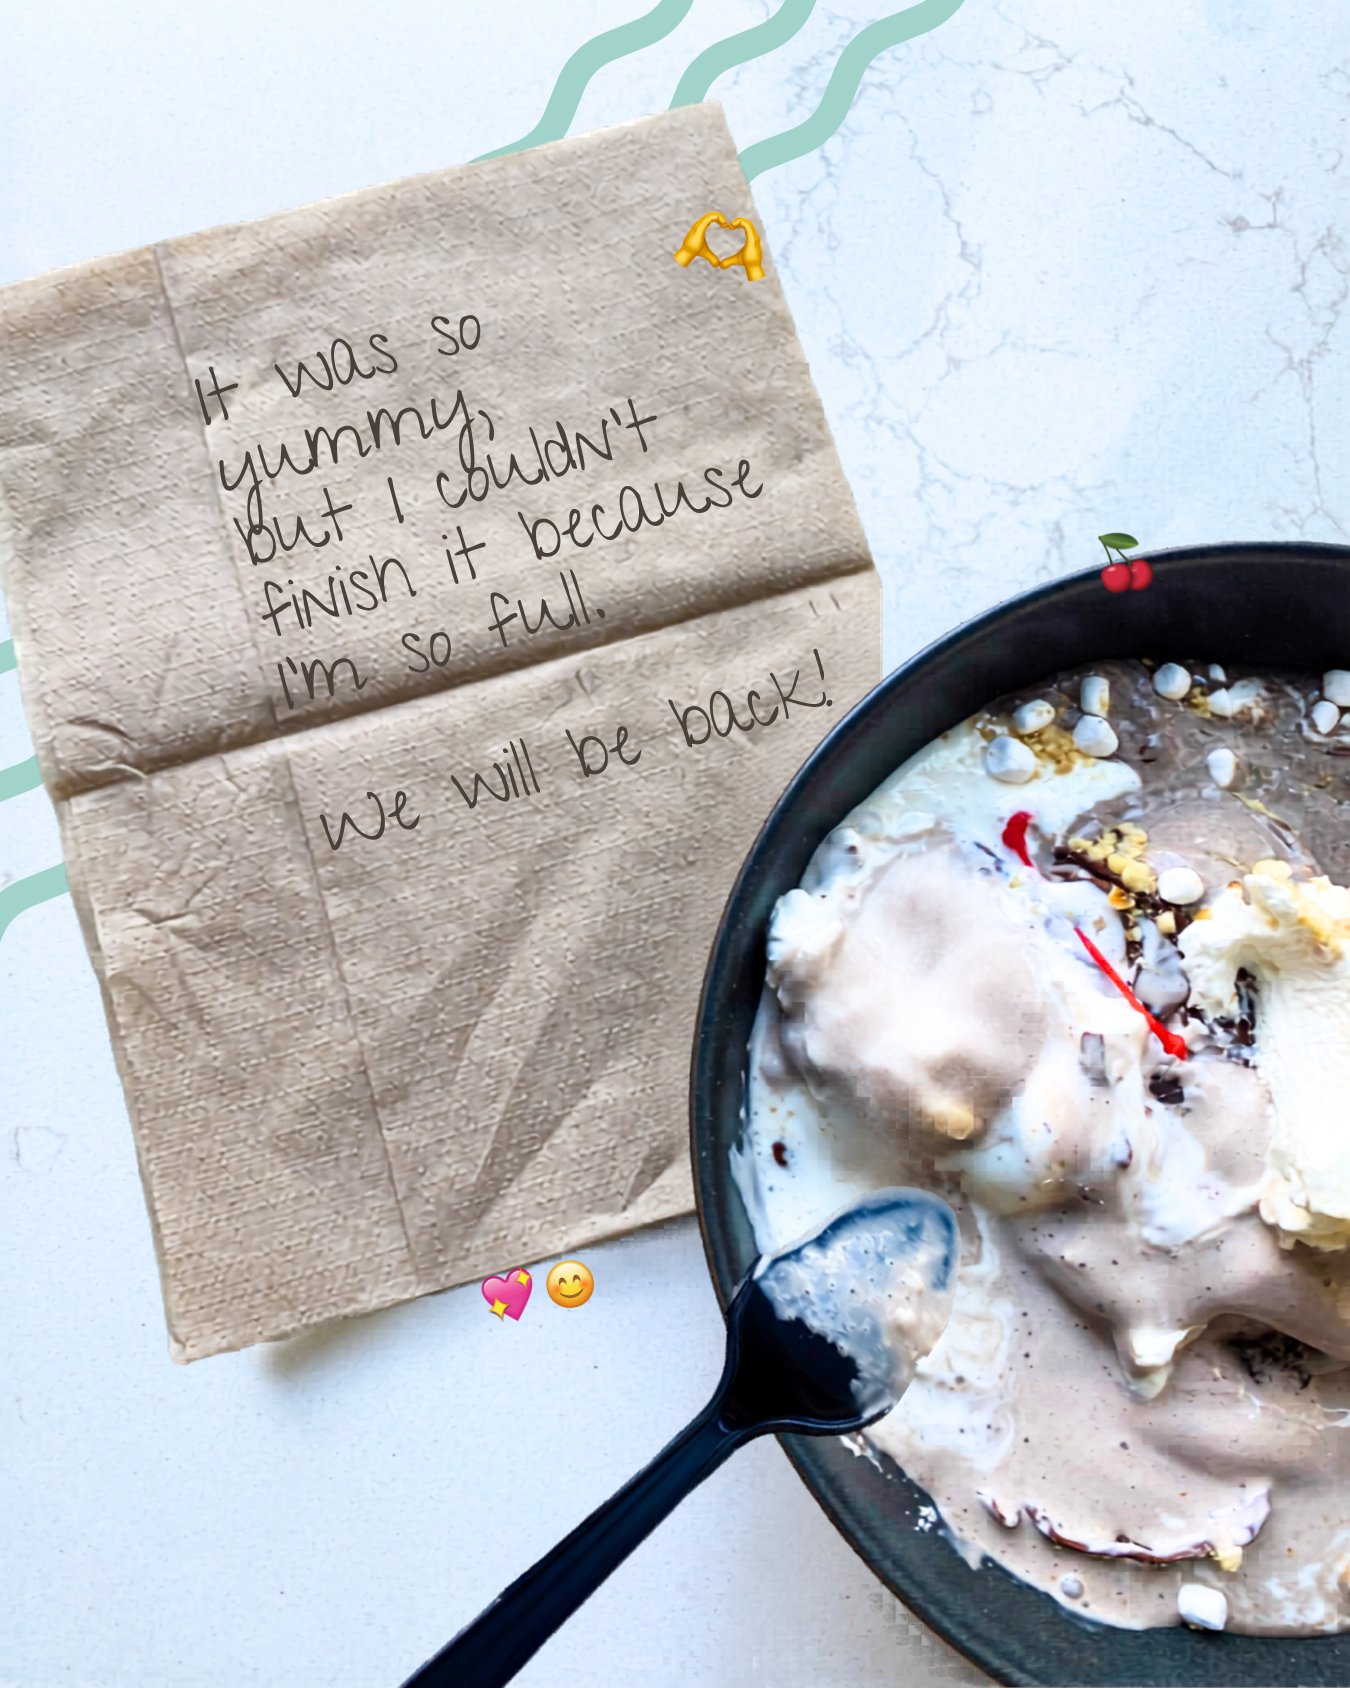 It was so
yummy,
but I couldn't
finish it because
I'm so full.
We will be back!